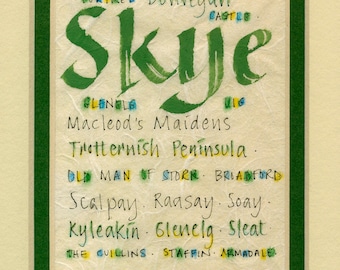 Dunvegan
CASTLE
Skye
GLENELG UIG
Macleod's Maidens
Trotternish Peninsula ·
OLD MAN OF STORR · BROADFORD
Scalpay · Raasay · Soay ·
Kyleakin · Glenelg · Sleat
THE CUILLINS · STAFFIN · ARMADALE